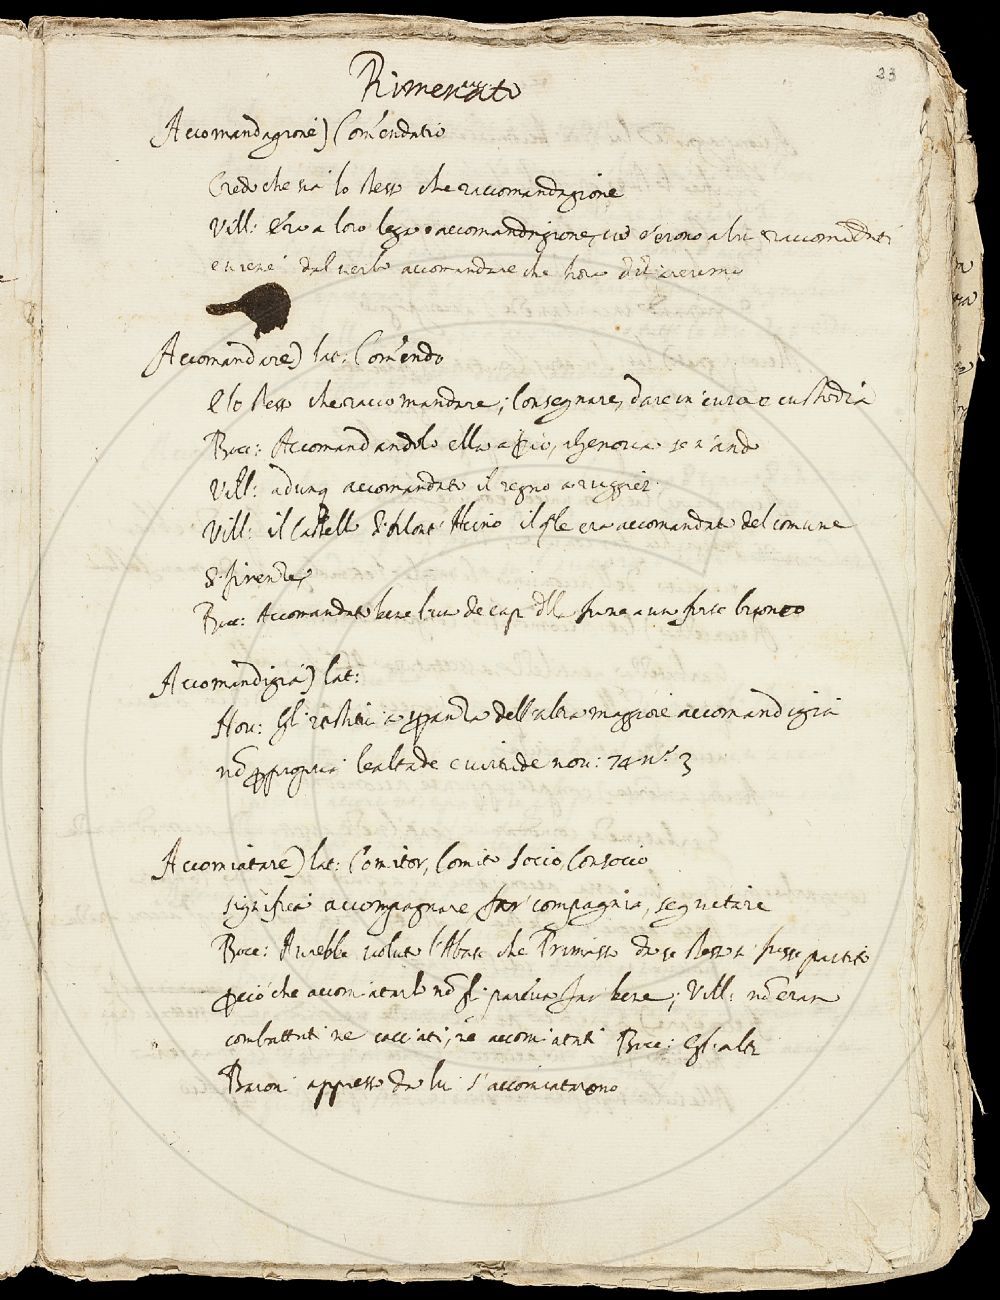 23
Accomandagione) Com'endatio
Credo che sia lo stesso che raccomandagione
Vill: Era a loro lega o accomandagione, cio s'erono a lui raccomandati
e viene dal verbo accomandare che hora
Accomandare) lat: Com'endo
E lo stesso che raccomandare; Consegnare, dare in cura o custodia
Bocc: Accomandandolo ella a Dio, a Genova se n'andò
Vill: adunq accomandato il regno a ruggieri
Vill: il Castello di Mont' Acino il qle era accomandato del comune
di firenze
Bocc: Accomandato bene l'uno de capi dlla fune a un forte bronco
Accomandigia) lat:
Nou: Gl' restitui a speranza dell'altra maggiore accomandigia
nō ꝓpropria lealtade e virtude nou: 74 n.º 3
Accomiatare) lat: Comitor, Comito Socio, Consocio
significa accompagnare far compagnia, seguitare
Bocc: Aurebbe voluto l'Abate che Primasso da se stesso si fusse partito
ꝑcio che accomiatarlo nō gli pareua far bene; Vill: nō eran
combattuti ne cacciati, ne accomiatati Bocc: Gl' altri
Baroni appresso da lui s'accomiatarono